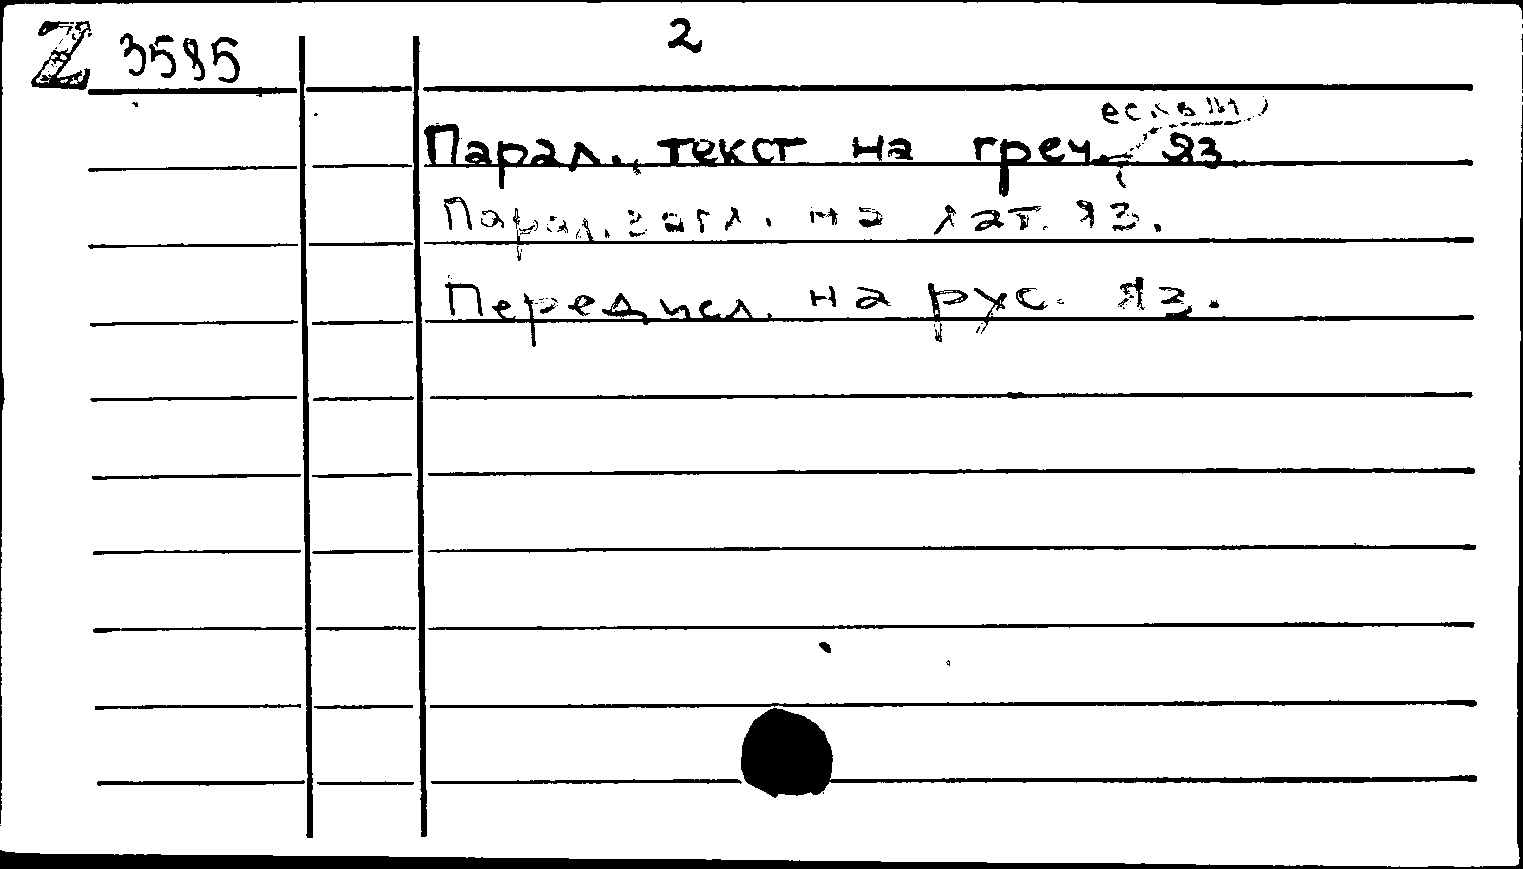 Z 3585
2
Парал. текст на греч. яз
Парал. загл. на лат. яз.
Передисл. на рус. яз.